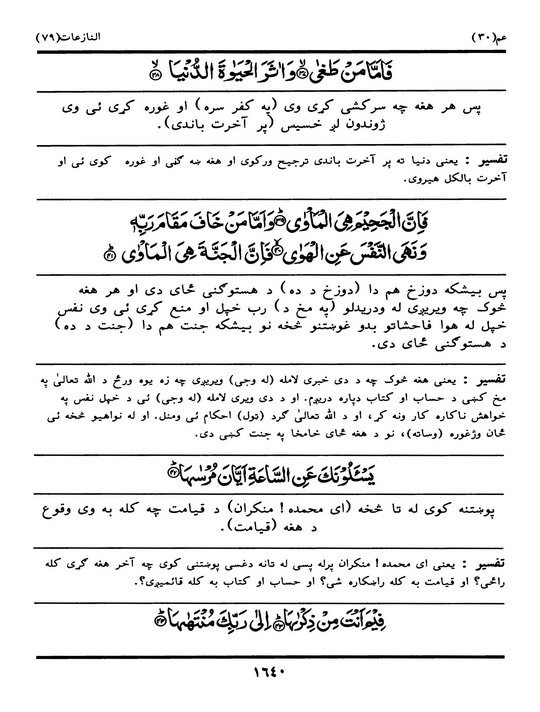 عم(۳۰) النازعات(۷۹)
فَاَمَّا مَنْ طَغٰی ۙ﴿۳۷﴾ وَاٰثَرَ الْحَیٰوةَ الدُّنْیَا ۙ﴿۳۸﴾
پس هر هغه چه سرکشی کړی وی (په کفر سره) او غوره کړی ئی وی
ژوندون لږ خسیس (پر آخرت باندی).
تفسیر : یعنی دنیا ته پر آخرت باندی ترجیح ورکوی او هغه ښه ګڼی او غوره کوی ئی او
آخرت بالکل هیروی.
فَاِنَّ الْجَحِیْمَ هِیَ الْمَاْوٰی ﴿۳۹﴾ وَاَمَّا مَنْ خَافَ مَقَامَ رَبِّهٖ
وَنَهَی النَّفْسَ عَنِ الْهَوٰی ﴿۴۰﴾ فَاِنَّ الْجَنَّةَ هِیَ الْمَاْوٰی ﴿۴۱﴾
پس بیشکه دوزخ هم دا (دوزخ د ده) د هستوګنی ځای دی او هر هغه
څوک چه ویریږی له ودریدلو (په مخ د) رب خپل او منع کړی ئی وی نفس
خپل له هوا فاحشاتو بدو غوښتنو څخه نو بیشکه جنت هم دا (جنت د ده)
د هستوګنی ځای دی.
تفسیر : یعنی هغه څوک چه د دی خبری لامله (له وجی) ویریږی چه زه یوه ورځ د الله تعالیٰ په
مخ کښی د حساب او کتاب دپاره دریږم. او د دی ویری لامله (له وجی) ئی د خپل نفس په
خواهش ناکاره کار ونه کړ، او د الله تعالیٰ ګرد (ټول) احکام ئی ومنل. او له نواهیو څخه ئی
ځان وژغوره (وساته)، نو د هغه ځای خامخا په جنت کښی دی.
یَسْـَٔلُوْنَكَ عَنِ السَّاعَةِ اَیَّانَ مُرْسٰىهَا ﴿۴۲﴾
پوښتنه کوی له تا څخه (ای محمده! منکران) د قیامت چه کله به وی وقوع
د هغه (قیامت).
تفسیر : یعنی ای محمده! منکران پرله پسی له تانه دغسی پوښتنی کوی چه آخر هغه ګړی کله
راځی؟ او قیامت به کله راښکاره شی؟ او حساب او کتاب به کله قائمیږی؟.
فِیْمَ اَنْتَ مِنْ ذِكْرٰىهَا ﴿۴۳﴾ اِلٰی رَبِّكَ مُنْتَهٰىهَا ﴿۴۴﴾
۱٦٤۰